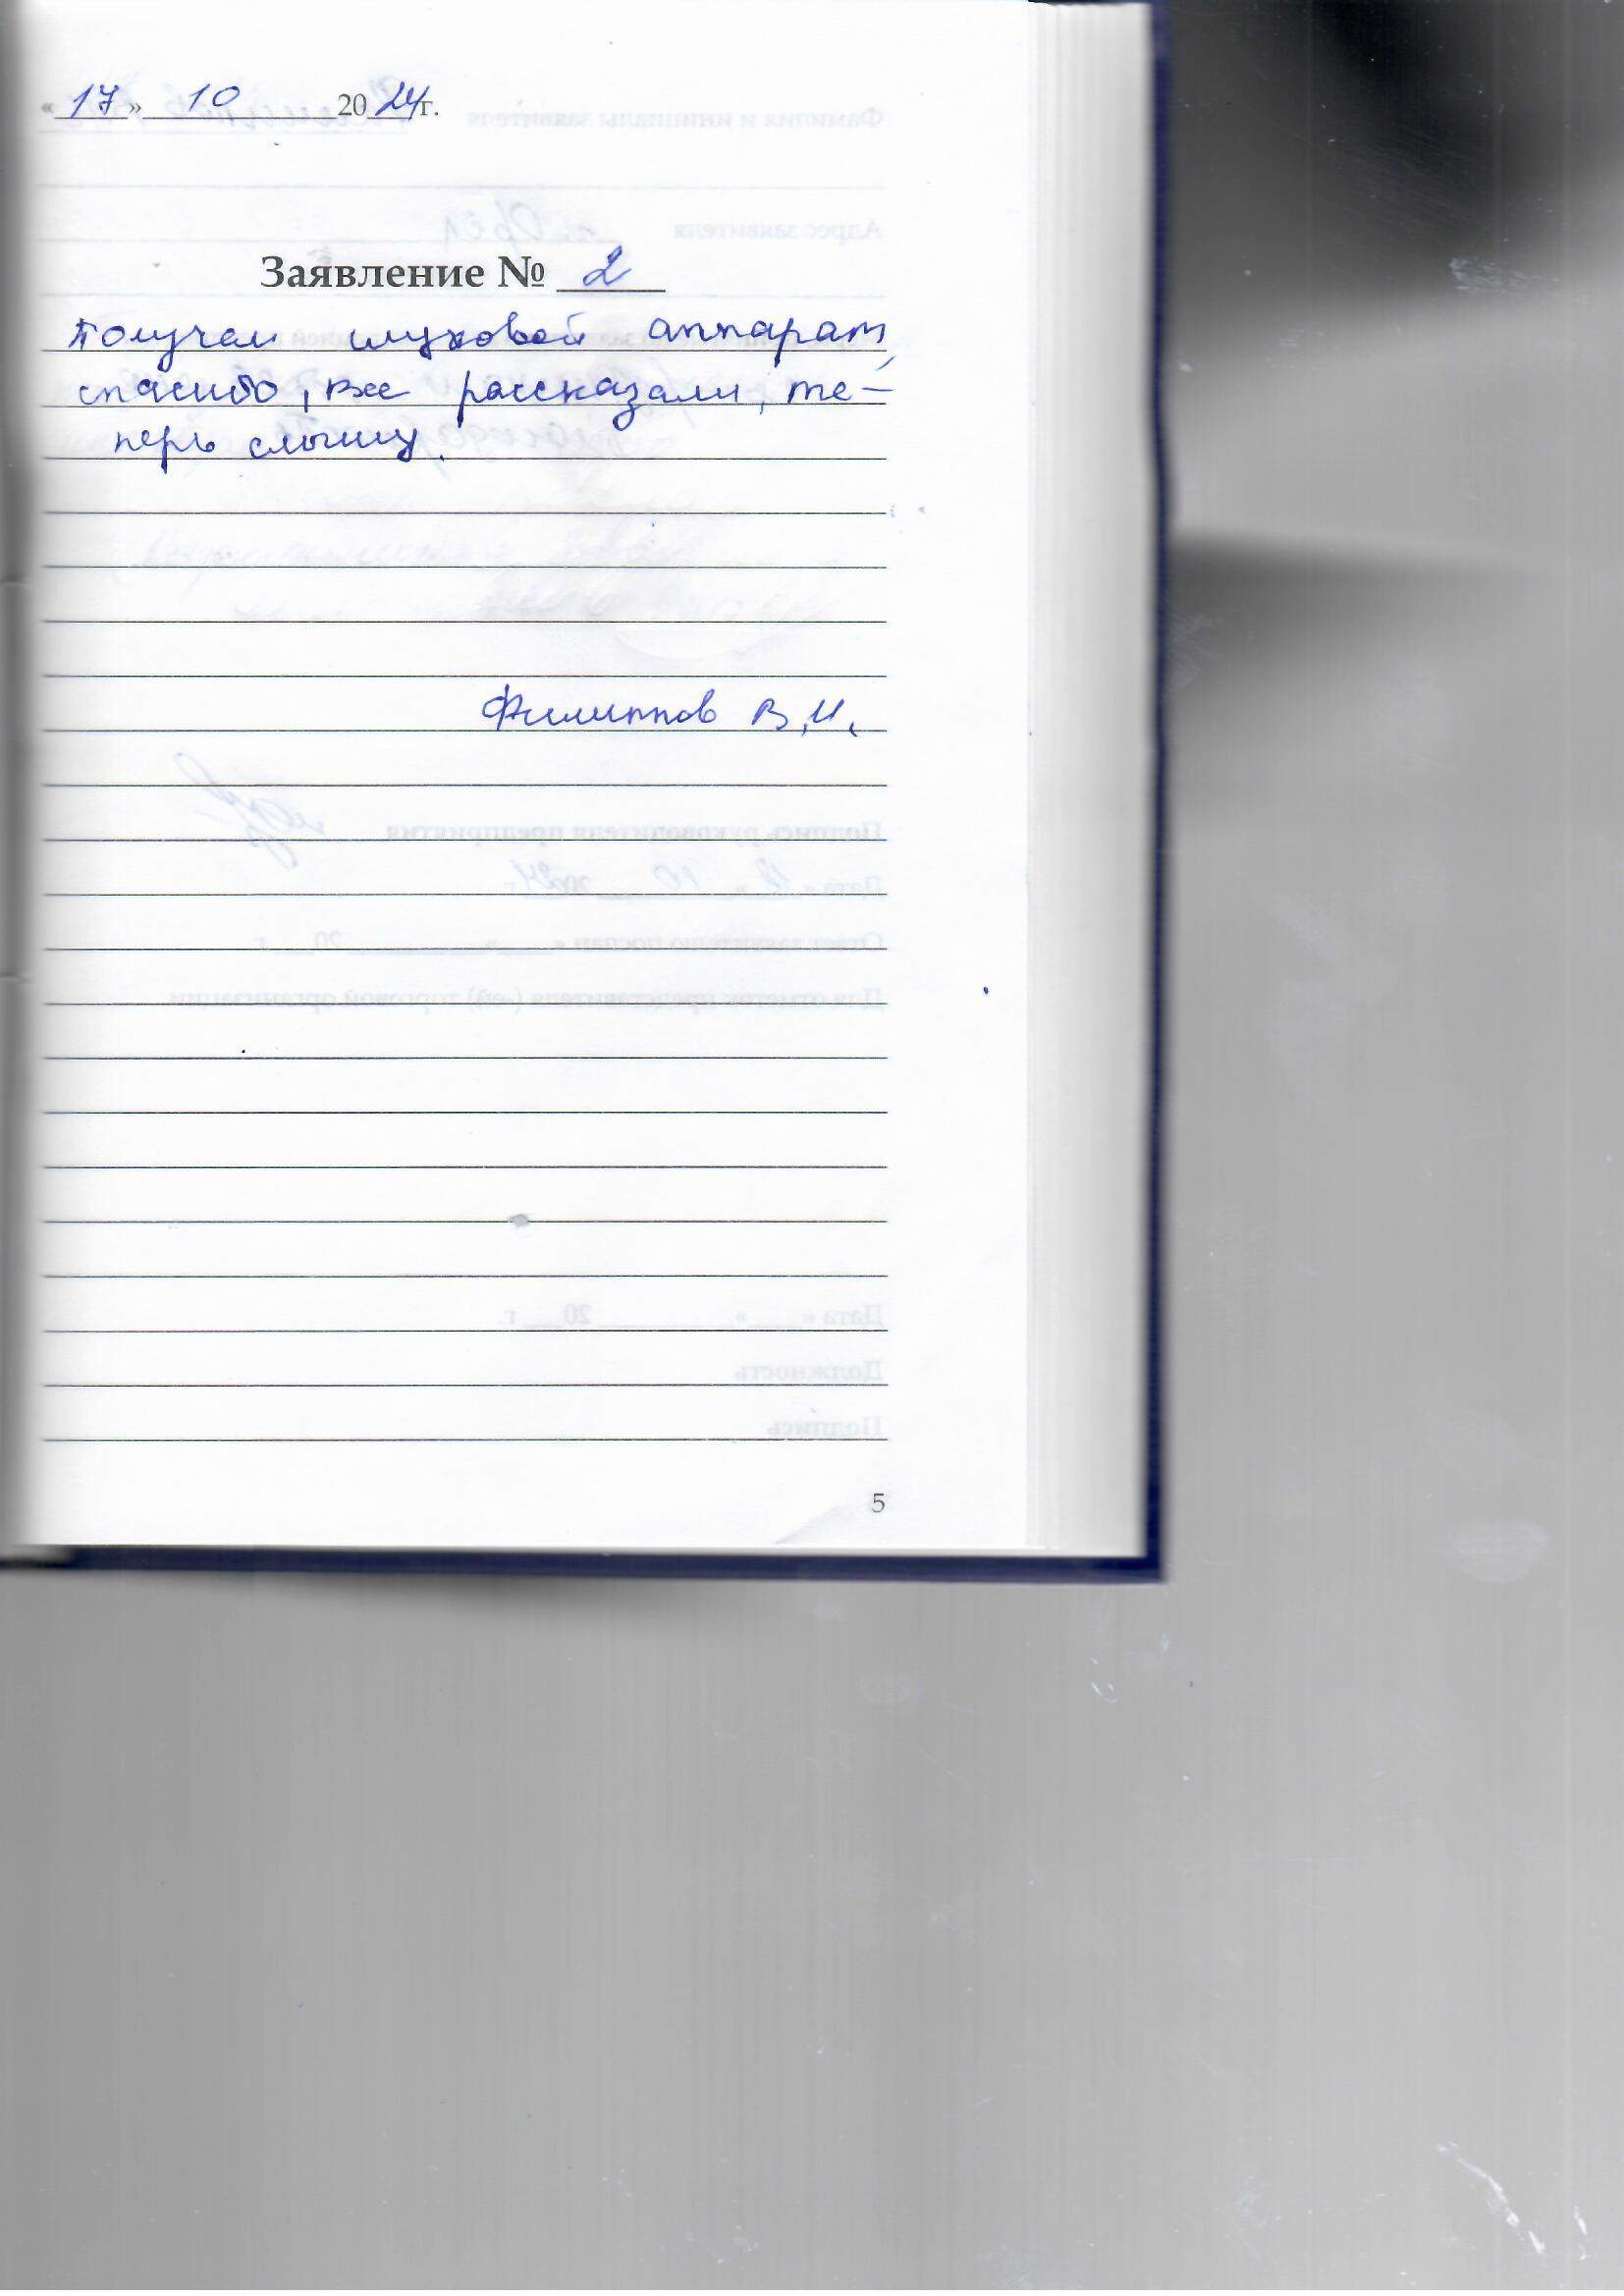 «17» 10 2024г.
Заявление № 2
Получил слуховой аппарат,
спасибо, все рассказали, те-
перь слышу.
Филиппов В.И.
5